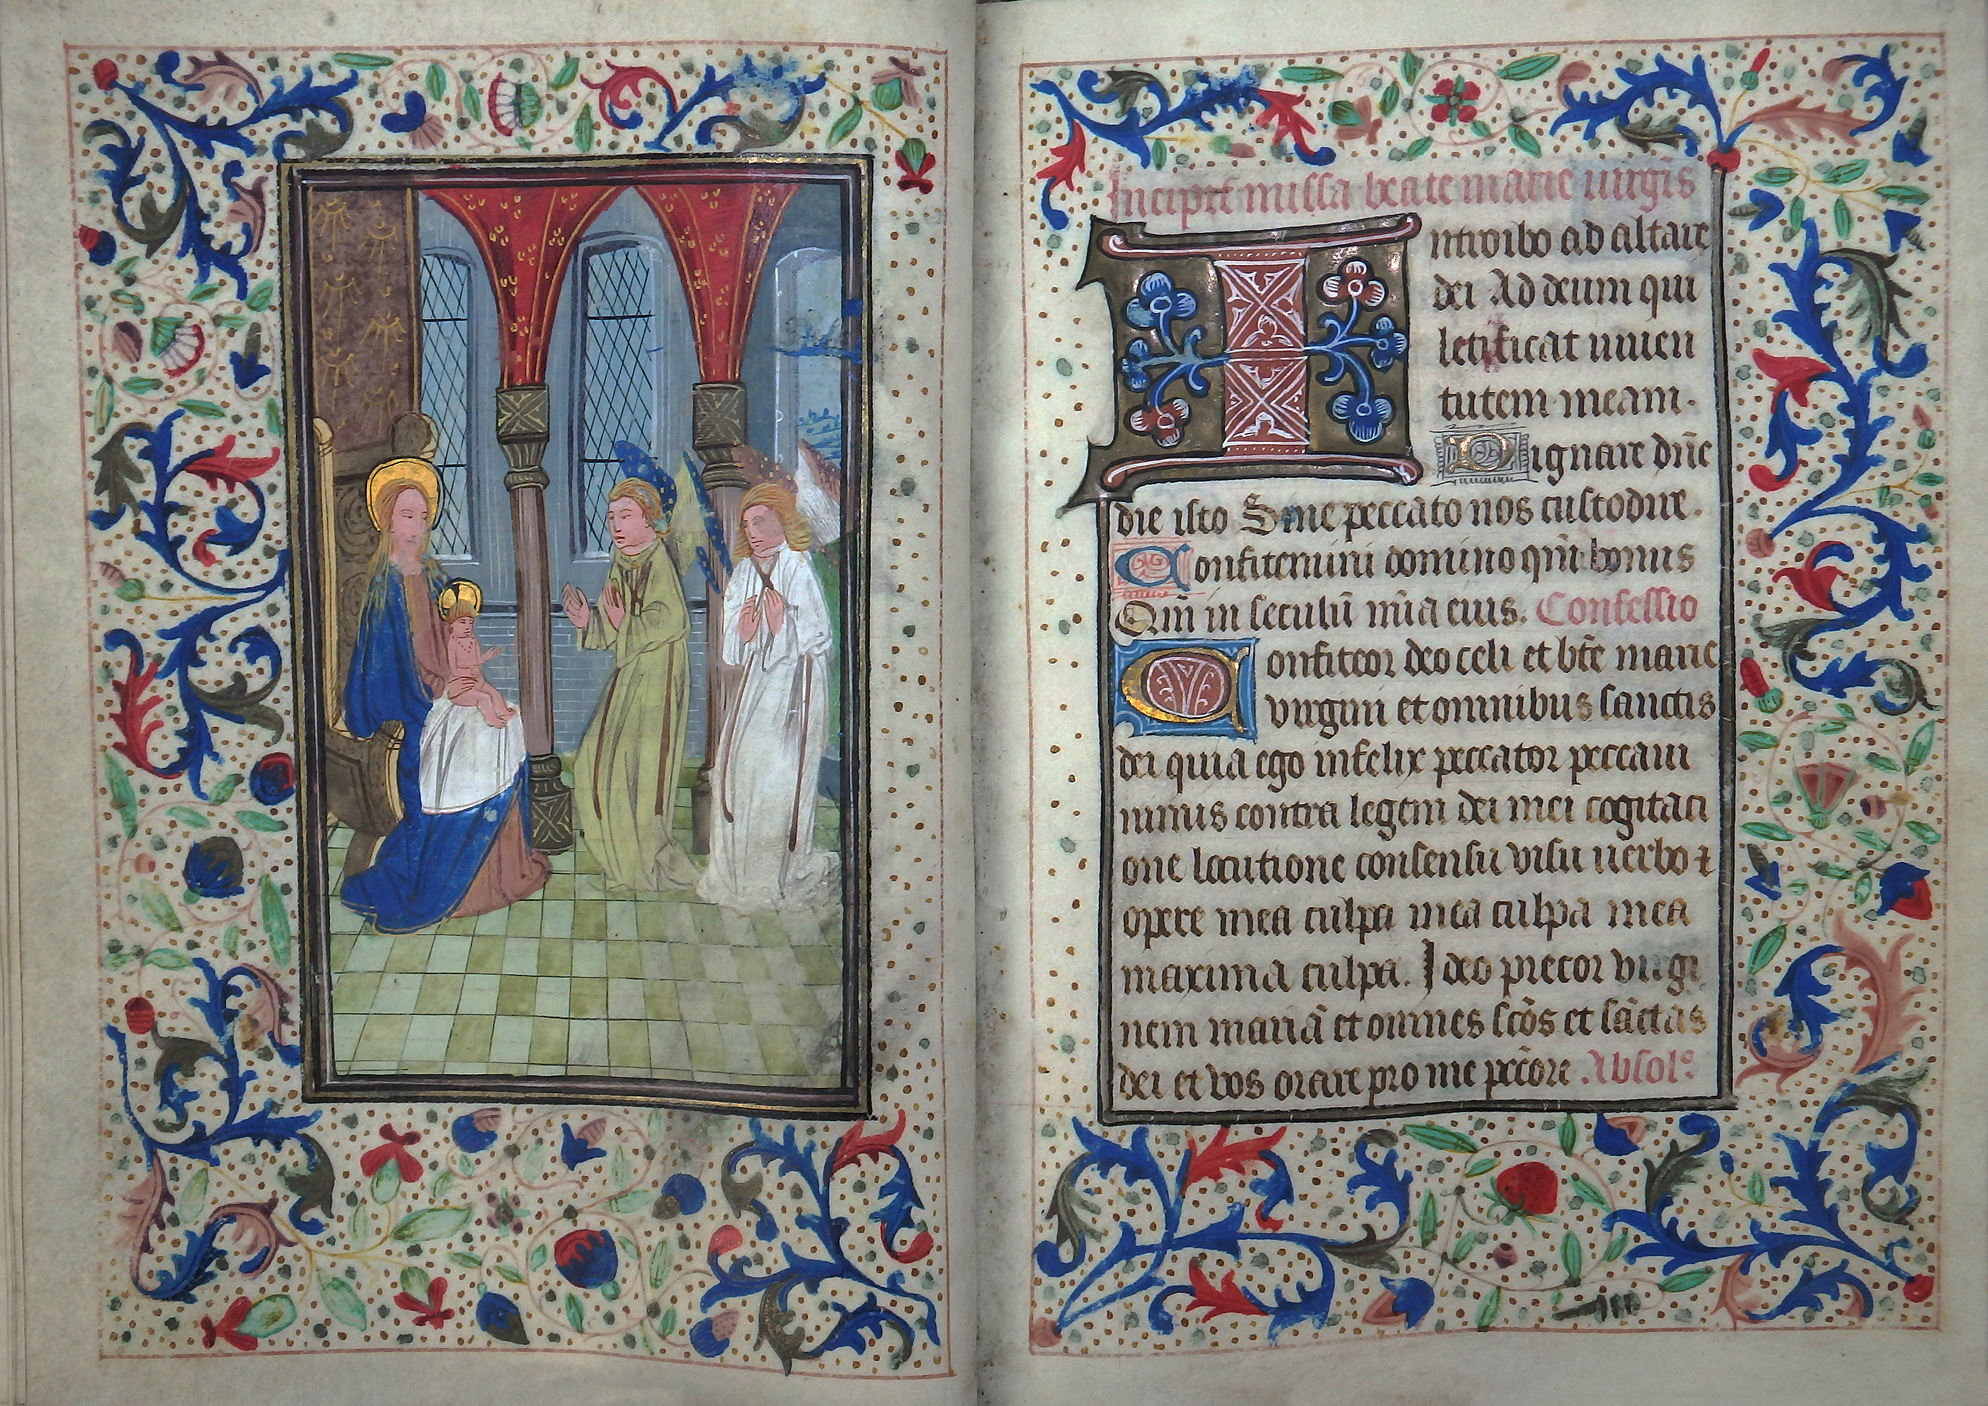 Incipit missa beate marie uirgīs
Introibo ad altare
dei Ad deum qui
letificat iuuen
tutem meam.
Dignare dn̄e
die isto Sine peccato nos custodire.
Confitemini domino qm̄ bonus
Qm̄ in seculū mīa eius. Confessio
Confiteor deo celi et bt̄e marie
virgini et omnibus sanctis
dei quia ego infelix peccator peccaui
nimis contra legem dei mei cogitaci
one locutione consensu visu uerbo ⁊
opere mea culpa mea culpa mea
maxima culpa. Ideo precor virgi
nem mariā et omnes scōs et sāctas
dei et vos orare pro me peccōre Absolᵒ